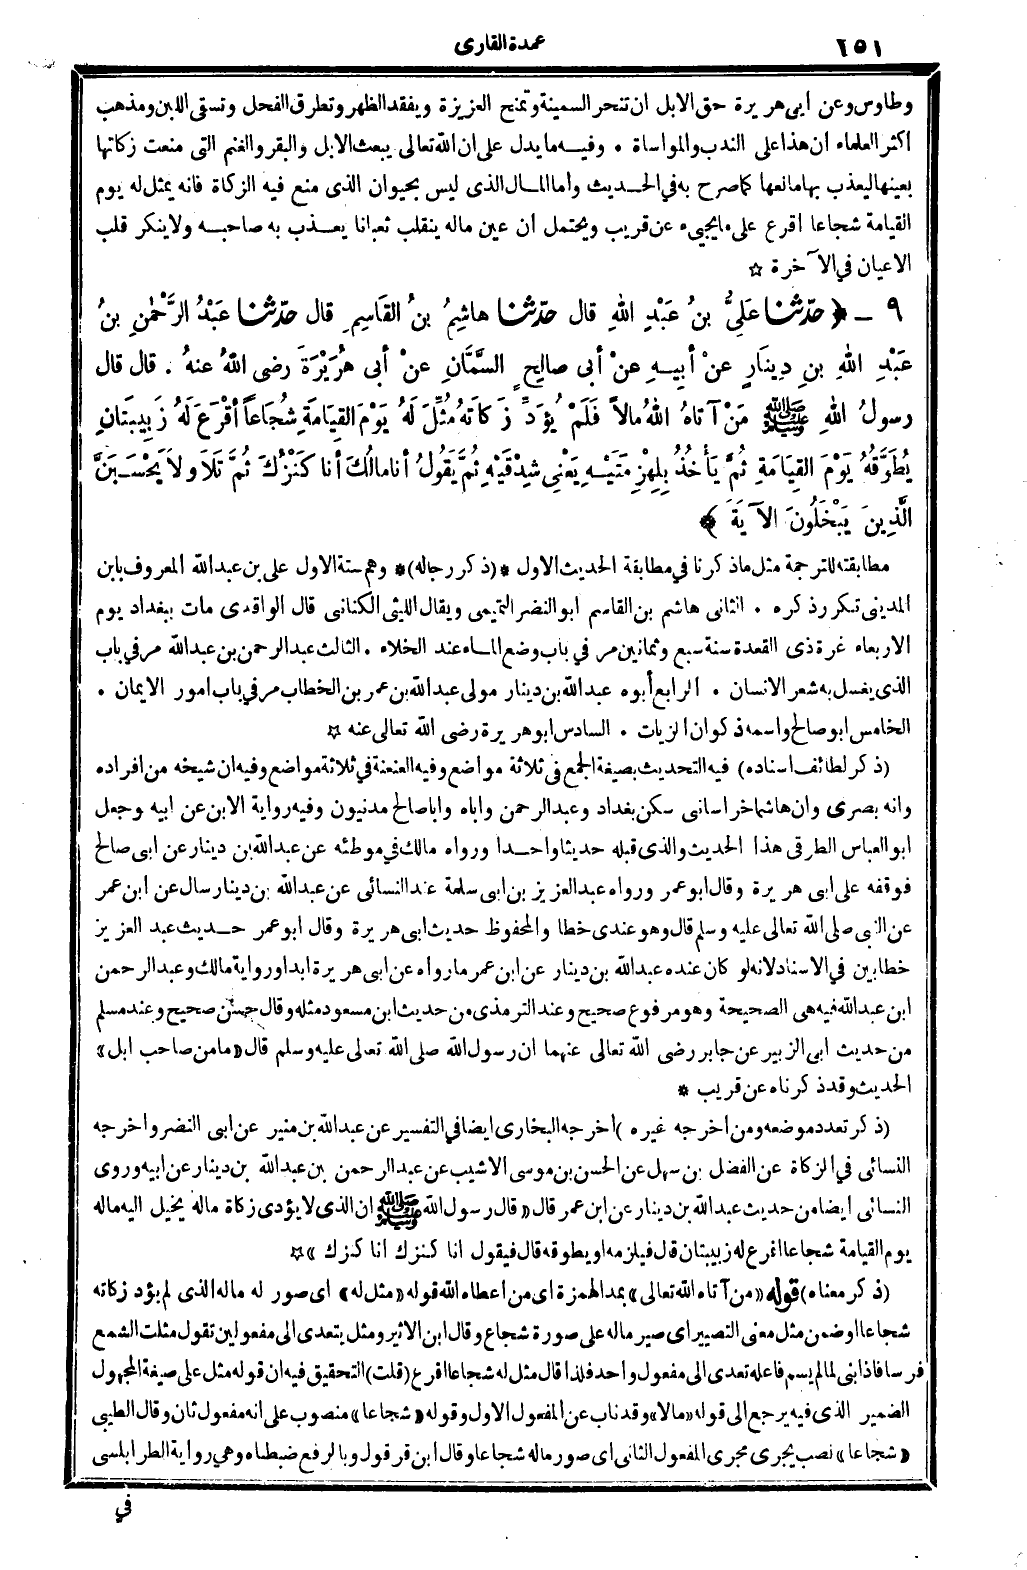 ٢٥١ عمدة القارى
وطاوس وعن أبى هريرة حق الابل ان تنحر السمينة وتمنح الغزيرة ويفقد الظهر وتطرق الفحل وتسقى اللبن ومذهب
اكثر العلماء ان هذا على الندب والمواساة ٠ وفيه ما يدل على ان الله تعالى يبعث الابل والبقر والغنم التى منعت زكاتها
بعينها ليعذب بها مانعها كما صرح به في الحديث وأما المال الذى ليس بحيوان الذى منع فيه الزكاة فانه يمثل له يوم
القيامة شجاعا أقرع على ما يجيء عن قريب ويحتمل ان عين ماله ينقلب ثعبانا يعذب به صاحبه ولا ينكر قلب
الاعيان في الآخرة ☆
٩ ـ ﴿ حدّثنا عَلِيُّ بنُ عَبْدِ اللهِ قال حدّثنا هاشِمُ بنُ القَاسِمِ قال حدّثنا عَبْدُ الرَّحْمٰنِ بنُ
عَبْدِ اللهِ بنِ دِينَارٍ عنْ أبيهِ عنْ أبى صالِحٍ السَّمَّانِ عنْ أبى هُرَيْرَةَ رضى اللهُ عنهُ . قال قال
رسولُ اللهِ ﷺ مَنْ آتاهُ اللهُ مالاً فَلَمْ يُؤَدِّ زَكاتَهُ مُثِّلَ لَهُ يَوْمَ القِيَامَةِ شُجَاعاً أقْرَعَ لَهُ زَبِيبَتَانِ
يُطَوَّقُهُ يَوْمَ القِيَامَةِ ثُمَّ يَأْخُذُ بِلِهْزِمَتَيْهِ يَعْنِى شِدْقَيْهِ ثُمَّ يَقُولُ أنا مالُكَ أنا كَنْزُكَ ثُمَّ تَلاَ ولاَ يَحْسَبَنَّ
الَّذِينَ يَبْخَلُونَ الآيَةَ ﴾
مطابقته للترجمة مثل ما ذكرنا في مطابقة الحديث الاول *(ذكر رجاله)* وهم ستة الاول على بن عبد الله المعروف بابن
المدينى تكرر ذكره ٠ الثانى هاشم بن القاسم ابو النضر التميمى ويقال الليثى الكنانى قال الواقدى مات ببغداد يوم
الاربعاء غرة ذى القعدة سنة سبع وثمانين مر في باب وضع الماء عند الخلاء ٠ الثالث عبد الرحمن بن عبد الله مر في باب
الذى يغسل به شعر الانسان ٠ الرابع أبوه عبد الله بن دينار مولى عبد الله بن عمر بن الخطاب مر في باب امور الايمان ٠
الخامس ابو صالح واسمه ذكوان الزيات ٠ السادس ابو هريرة رضى الله تعالى عنه ☆
(ذكر لطائف اسناده) فيه التحديث بصيغة الجمع فى ثلاثة مواضع وفيه العنعنة في ثلاثة مواضع وفيه ان شيخه من افراده
وانه بصرى وان هاشما خراسانى سكن بغداد وعبد الرحمن واباه وابا صالح مدنيون وفيه رواية الابن عن ابيه وجعل
ابو العباس الطرقى هذا الحديث والذى قبله حديثا واحدا ورواه مالك في موطئه عن عبد الله بن دينار عن ابى صالح
فوقفه على ابى هريرة وقال ابو عمر ورواه عبد العزيز بن ابى سلمة عند النسائى عن عبد الله بن دينار سال عن ابن عمر
عن النبى صلى الله تعالى عليه وسلم قال وهو عندى خطا والمحفوظ حديث ابى هريرة وقال ابو عمر حديث عبد العزيز
خطا بين في الاسناد لانه لو كان عنده عبد الله بن دينار عن ابن عمر ما رواه عن ابى هريرة ابدا ورواية مالك وعبد الرحمن
ابن عبد الله فيه هى الصحيحة وهو مرفوع صحيح وعند الترمذى من حديث ابن مسعود مثله وقال حسن صحيح وعند مسلم
من حديث ابى الزبير عن جابر رضى الله تعالى عنهما ان رسول الله صلى الله تعالى عليه وسلم قال «ما من صاحب ابل»
الحديث وقد ذكرناه عن قريب *
(ذكر تعدد موضعه ومن أخرجه غيره) أخرجه البخارى ايضا في التفسير عن عبد الله بن منير عن ابى النضر واخرجه
النسائى في الزكاة عن الفضل بن سهل عن الحسن بن موسى الاشيب عن عبد الرحمن بن عبد الله بن دينار عن ابيه وروى
النسائى أيضا من حديث عبد الله بن دينار عن ابن عمر قال «قال رسول الله ﷺ ان الذى لا يؤدى زكاة ماله يخيل اليه ماله
يوم القيامة شجاعا اقرع له زبيبتان قال فيلزمه او يطوقه قال فيقول انا كنزك انا كنزك» ☆
(ذكر معناه) قوله «من آتاه الله تعالى» بمد الهمزة اى من أعطاه الله قوله «مثل له» اى صور له ماله الذى لم يؤد زكاته
شجاعا او ضمن مثل معنى التصيير اى صير ماله على صورة شجاع وقال ابن الاثير ومثل يتعدى الى مفعولين تقول مثلت الشمع
فرسا فاذا بنى لما لم يسم فاعله تعدى الى مفعول واحد فلذا قال مثل له شجاعا اقرع (قلت) التحقيق فيه ان قوله مثل على صيغة المجهول
الضمير الذى فيه يرجع الى قوله «مالا» وقد ناب عن المفعول الاول وقوله «شجاعا» منصوب على انه مفعول ثان وقال الطيبى
«شجاعا» نصب يجرى مجرى المفعول الثانى اى صور ماله شجاعا وقال ابن قرقول وبالرفع ضبطناه وهى رواية الطرابلسى
في